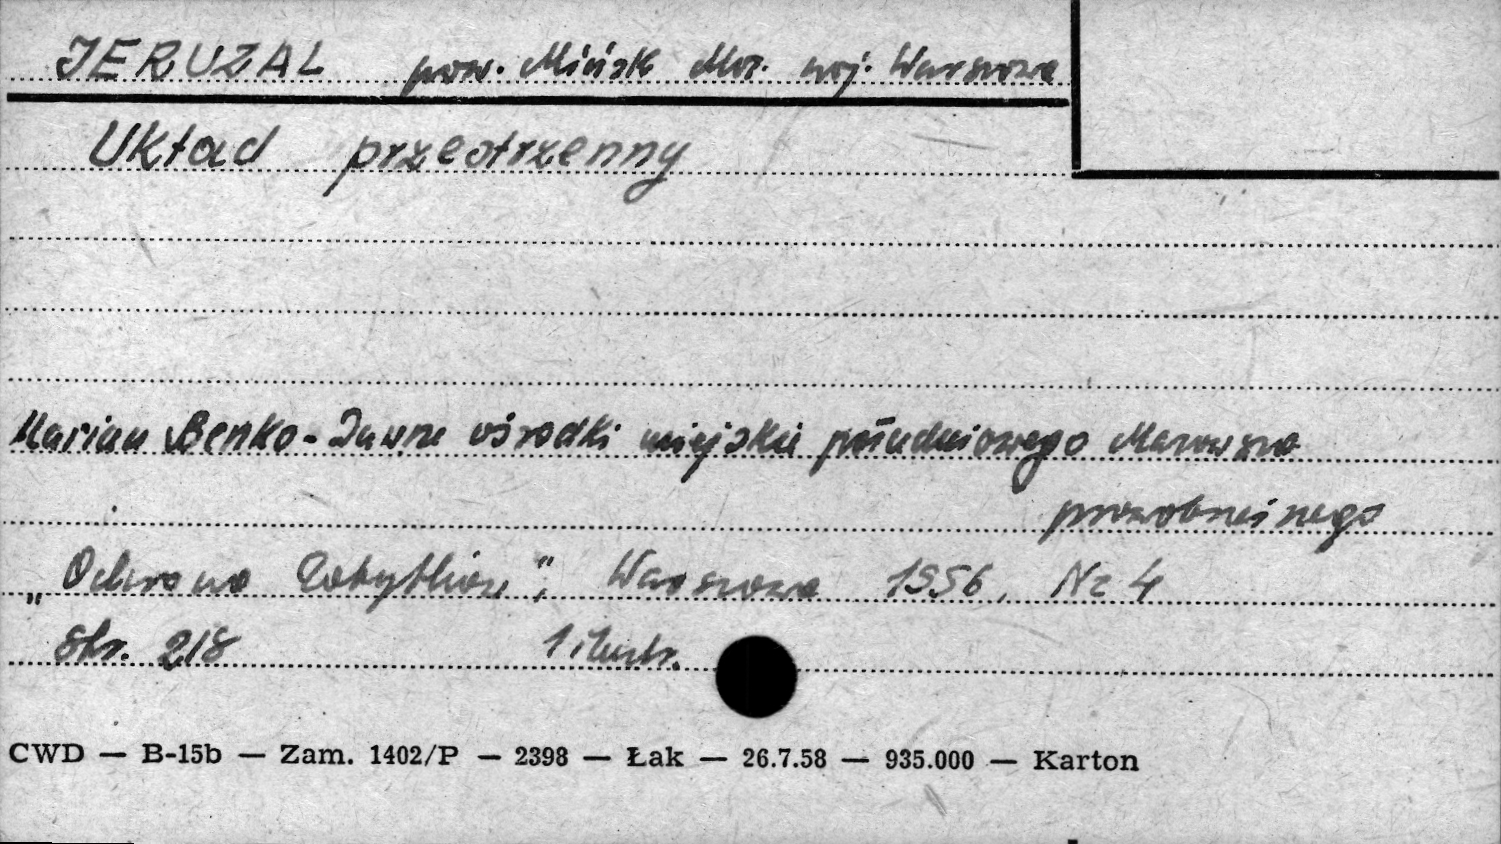 JERUZAL pow. Mińsk Maz. woj. Warszawa
Układ przestrzenny
Marian Benko - Dawne ośrodki miejskie południowego Mazowsza
prawobrzeżnego
„Ochrona Zabytków", Warszawa 1956, Nr 4
str. 218 1 ilustr.
CWD — B-15b — Zam. 1402/P — 2398 — Łak — 26.7.58 — 935.000 — Karton